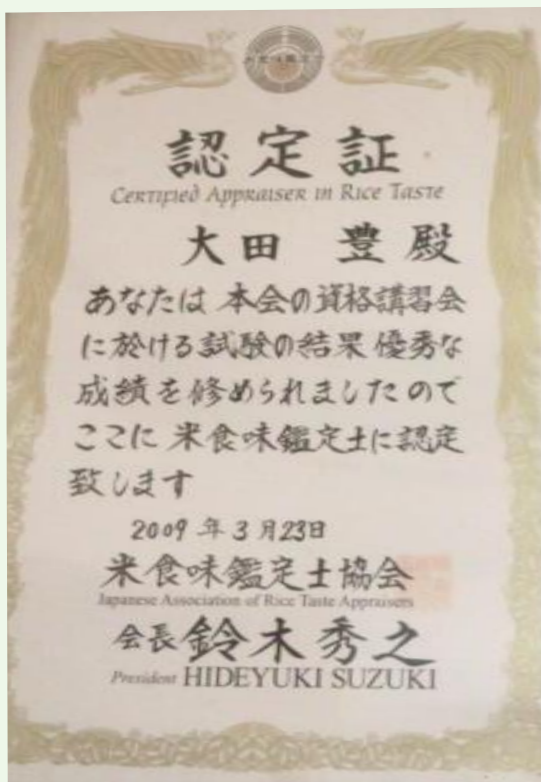 認定証
Certified Appraiser in Rice Taste
大田 豊 殿
あなたは 本会の資格講習会
に於ける試験の結果 優秀な
成績を修められましたので
ここに 米食味鑑定士に認定
致します
2009 年 3 月 23日
米食味鑑定士協会
Japanese Association of Rice Taste Appraisers
会長 鈴木秀之
President HIDEYUKI SUZUKI